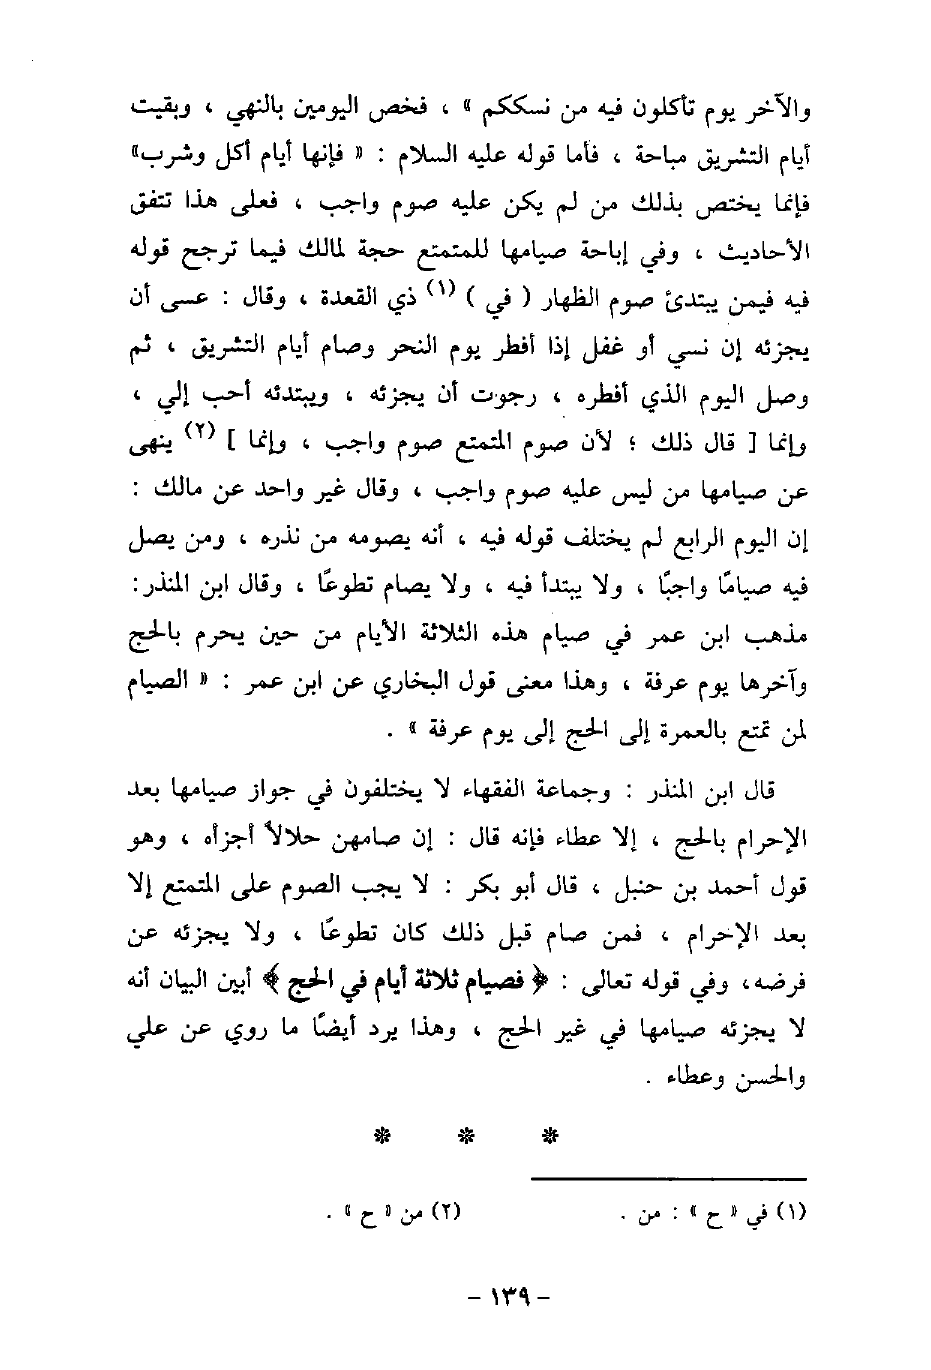 والآخر يوم تأكلون فيه من نسككم » ، فخص اليومين بالنهي ، وبقيت
أيام التشريق مباحة ، فأما قوله عليه السلام : « فإنها أيام أكل وشرب»
فإنما يختص بذلك من لم يكن عليه صوم واجب ، فعلى هذا تتفق
الأحاديث ، وفي إباحة صيامها للمتمتع حجة لمالك فيما ترجح قوله
فيه فيمن يبتدئ صوم الظهار ( في ) (١) ذي القعدة ، وقال : عسى أن
يجزئه إن نسي أو غفل إذا أفطر يوم النحر وصام أيام التشريق ، ثم
وصل اليوم الذي أفطره ، رجوت أن يجزئه ، ويبتدئه أحب إلي ،
وإنما [ قال ذلك ؛ لأن صوم المتمتع صوم واجب ، وإنما ] (٢) ينهى
عن صيامها من ليس عليه صوم واجب ، وقال غير واحد عن مالك :
إن اليوم الرابع لم يختلف قوله فيه ، أنه يصومه من نذره ، ومن يصل
فيه صيامًا واجبًا ، ولا يبتدأ فيه ، ولا يصام تطوعًا ، وقال ابن المنذر:
مذهب ابن عمر في صيام هذه الثلاثة الأيام من حين يحرم بالحج
وآخرها يوم عرفة ، وهذا معنى قول البخاري عن ابن عمر : « الصيام
لمن تمتع بالعمرة إلى الحج إلى يوم عرفة » .
قال ابن المنذر : وجماعة الفقهاء لا يختلفون في جواز صيامها بعد
الإحرام بالحج ، إلا عطاء فإنه قال : إن صامهن حلالاً أجزأه ، وهو
قول أحمد بن حنبل ، قال أبو بكر : لا يجب الصوم على المتمتع إلا
بعد الإحرام ، فمن صام قبل ذلك كان تطوعًا ، ولا يجزئه عن
فرضه، وفي قوله تعالى : ﴿ فصيام ثلاثة أيام في الحج ﴾ أبين البيان أنه
لا يجزئه صيامها في غير الحج ، وهذا يرد أيضًا ما روي عن علي
والحسن وعطاء .
* * *
(١) في « ح » : من . (٢) من « ح » .
- ١٣٩ -